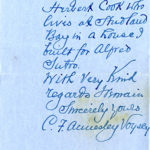 Herbert Cook who
lives at Studland
Bay in a house I
built for Alfred
Sutro.
With very kind
regards I remain
Sincerely yours
C. F. Annesley Voysey